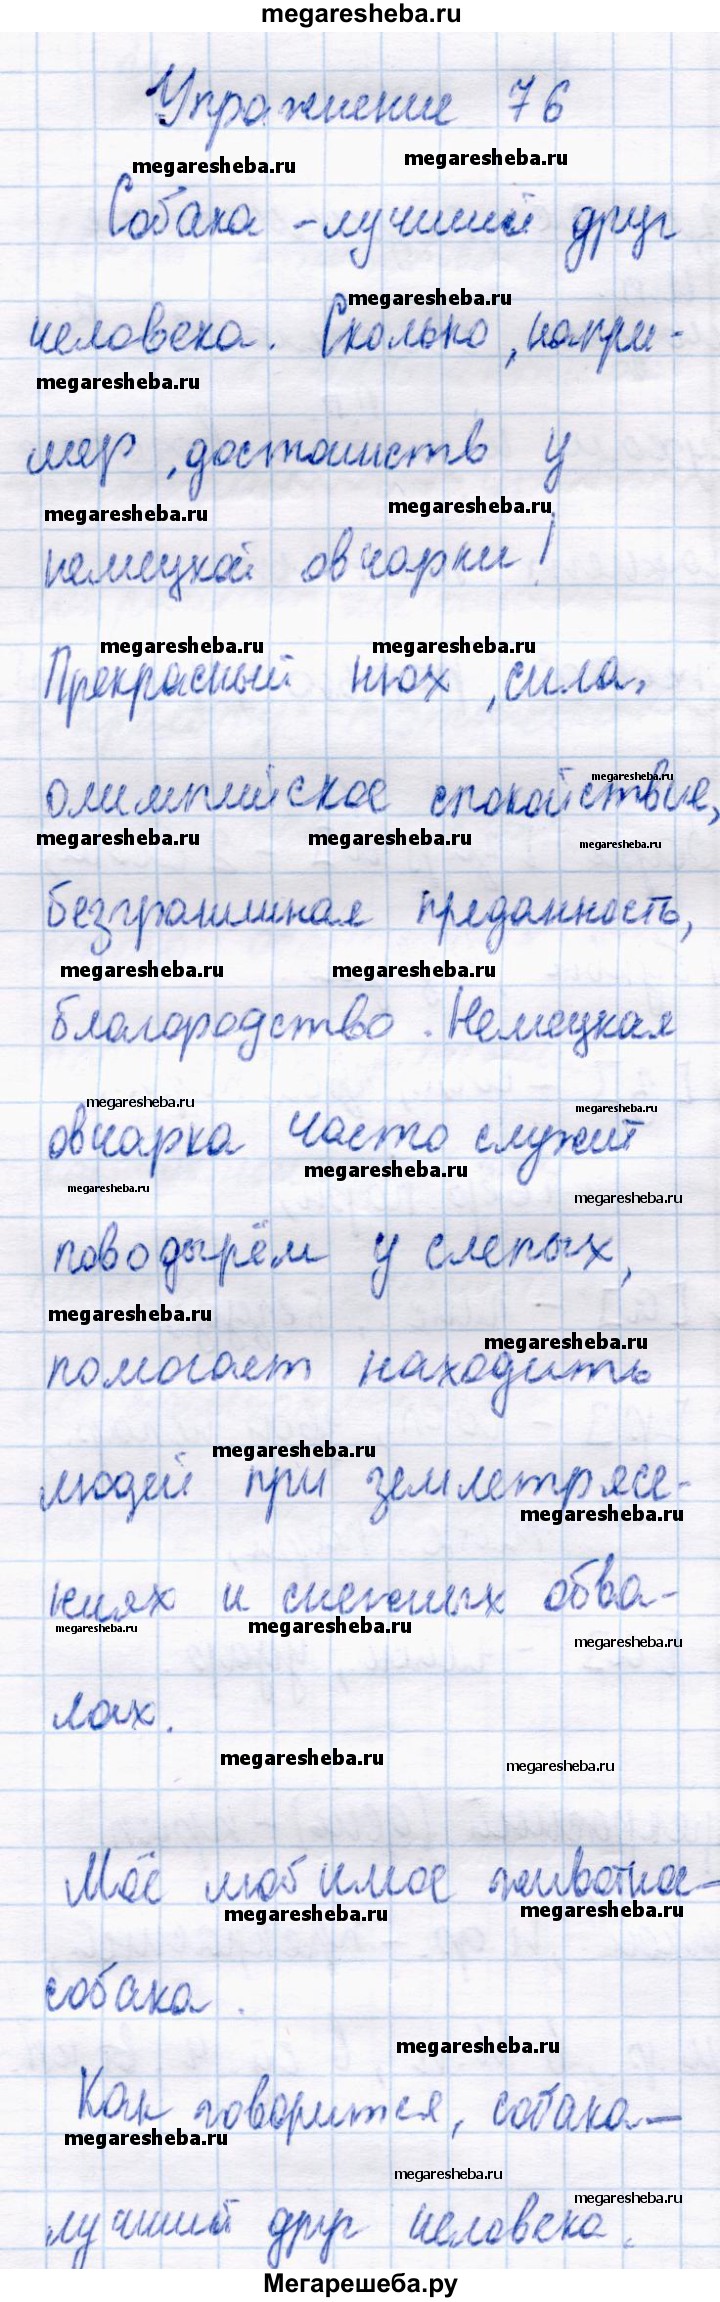 megaresheba.ru
Упражнение 76
megaresheba.ru megaresheba.ru
Собака - лучший друг
megaresheba.ru
человека. Сколько, напри-
megaresheba.ru
мер, достоинств у
megaresheba.ru megaresheba.ru
немецкой овчарки!
megaresheba.ru megaresheba.ru
Прекрасный нюх, сила,
megaresheba.ru
олимпийское спокойствие,
megaresheba.ru megaresheba.ru megaresheba.ru
безграничная преданность,
megaresheba.ru megaresheba.ru
благородство. Немецкая
megaresheba.ru megaresheba.ru
овчарка часто служит
megaresheba.ru megaresheba.ru megaresheba.ru
поводырём у слепых,
megaresheba.ru megaresheba.ru
помогает находить
megaresheba.ru
людей при землетрясе-
megaresheba.ru
ниях и снежных обва-
megaresheba.ru megaresheba.ru megaresheba.ru
лах.
megaresheba.ru megaresheba.ru
Моё любимое животное -
megaresheba.ru megaresheba.ru
собака.
megaresheba.ru
Как говорится, собака -
megaresheba.ru megaresheba.ru megaresheba.ru
лучший друг человека.
Мегарешеба.ру